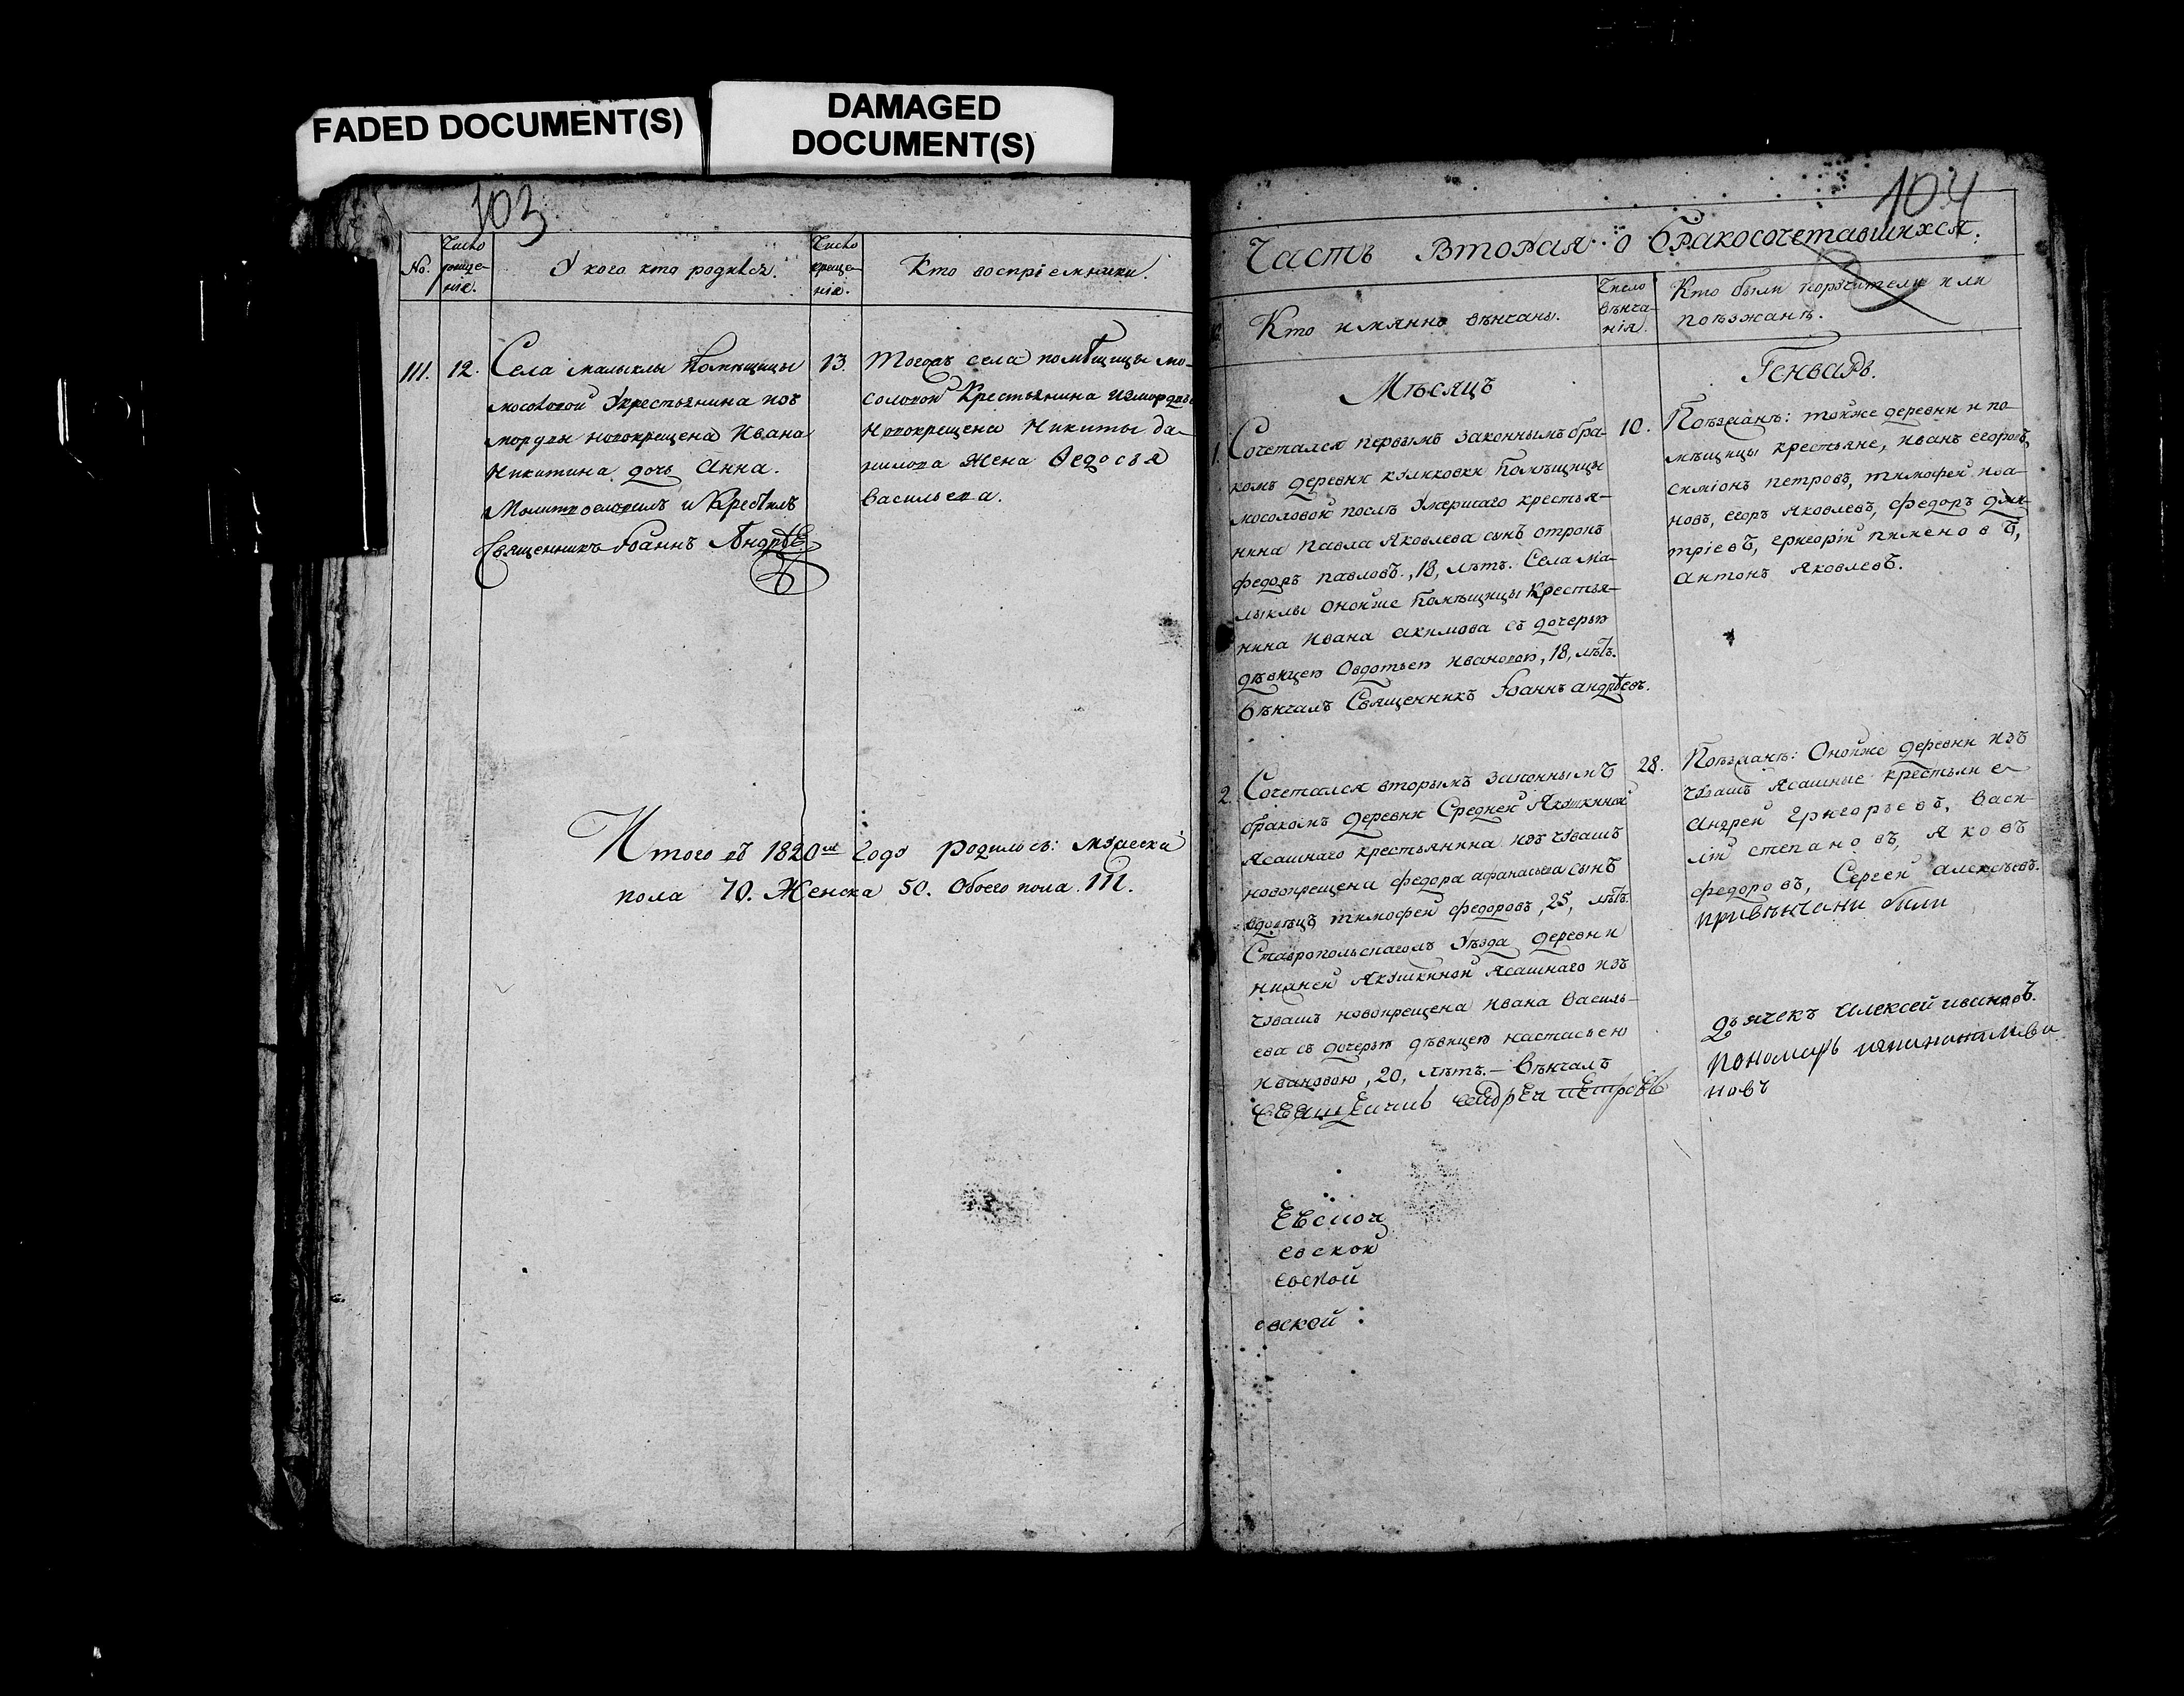 FADED DOCUMENT(S)
DAMAGED
DOCUMENT(S)
103
No.
Число
рожде-
нія.
У кого кто родился.
Число
креще-
нія.
Кто воспріемники.
111.
12.
Села малыклы помѣщицы
мосоловой Укрестьянина изъ
мордвы новокрещена Ивана
Никитина дочь Анна.
Молитвословилъ и Крестилъ
Священникъ Іоаннъ Андрѣе
13.
Тогожъ села помѣщицы мо-
соловой Крестьянина измордвы
Новокрещена Никиты да-
нилова жена Ѳедосья
Васильева.
Итого въ 1820мъ Году родилось: мужеска
пола 70. Женска 50. Обоего пола 111.
104
Часть Вторая о бракосочетавшихся.
Кто имянно вѣнчаны.
Число
вѣнча-
нія.
Кто были поручители или
поѣзжанѣ.
Мѣсяцъ
Генварь.
1.
Сочетался первымъ законнымъ бра-
комъ деревни куликовки Помѣщицы
мосоловой послѣ Умершаго крестья-
нина Павла Яковлева сынъ отрокъ
федоръ павловъ, 18, лѣтъ. Села ма-
лыклы Онойже Помѣщицы Крестья-
нина Ивана акимова съ дочерью
дѣвицею Овдотьею Ивановою, 18, лѣтъ.
Вѣнчалъ Священникъ Іоаннъ андрѣевъ.
10.
Поѣзжанѣ: тойже деревни и по-
мѣщицы крестьяне, иванъ егоровъ,
симіонъ петровъ, тимофей ива-
новъ, егоръ яковлевъ, федоръ дми-
тріевъ, григорій пименовъ,
антонъ яковлевъ.
2.
Сочетался вторымъ законнымъ
бракомъ деревни Средней Якушкиной
Ясашнаго крестьянина изъ чувашъ
новокрещена федора афанасьева сынъ
вдовецъ тимофей федоровъ, 25, лѣтъ.
Ставропольскагожъ Уѣзда деревни
нижней Якушкиной Ясашнаго изъ
чувашъ новокрещена Ивана Василь-
ева съ дочерью дѣвицею настасьею
ивановою, 20, лѣтъ. - Вѣнчалъ
священникъ андреи петровъ
28.
Поѣзжанѣ: Онойже деревни изъ
чувашъ Ясашные крестьяне
андрей григорьевъ, васи-
лій степановъ, яковъ
федоровъ, Сергей алексѣевъ.
привѣнчани были
дьячекъ алексей ивановъ.
пономарь
новъ
евской
евской
овской